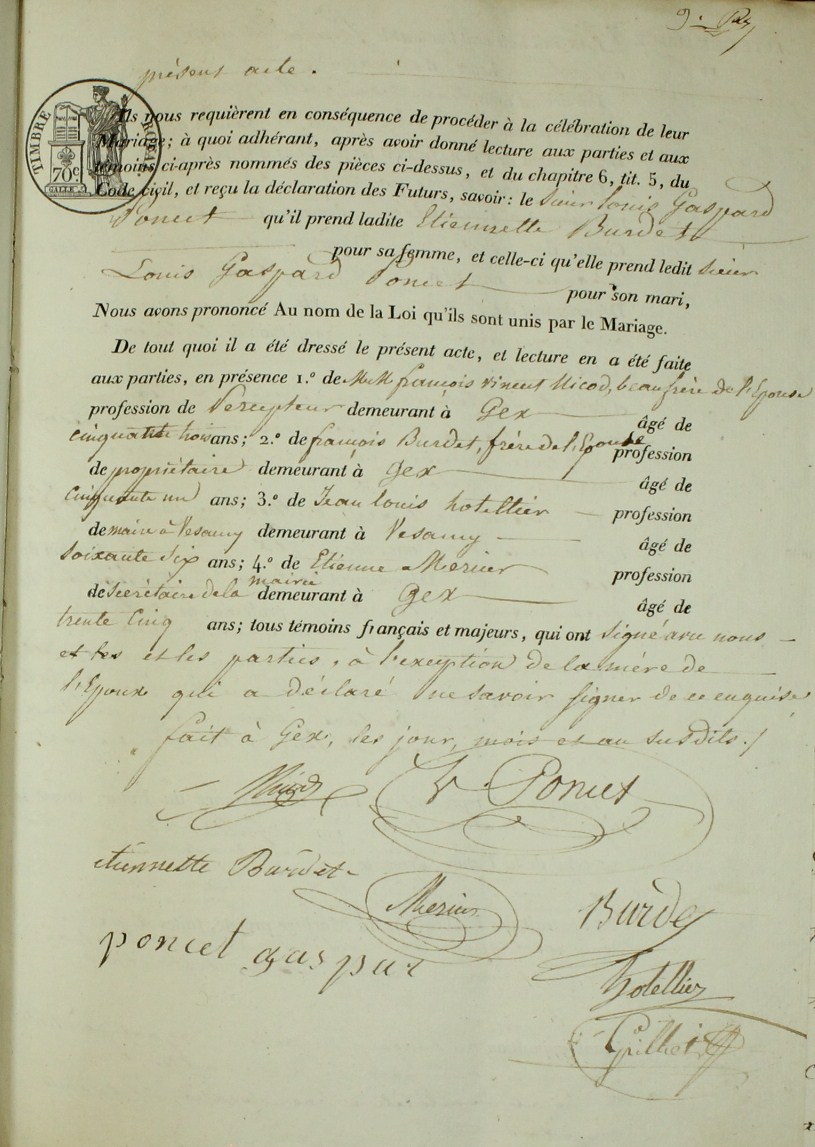 9.
présent acte.
TIMBRE ROYAL
70c
Ils nous requièrent en conséquence de procéder à la célébration de leur
Mariage; à quoi adhérant, après avoir donné lecture aux parties et aux
témoins ci-après nommés des pièces ci-dessus, et du chapitre 6, tit. 5, du
Code civil, et reçu la déclaration des Futurs, savoir: le Sieur Louis Gaspard
Poncet qu'il prend ladite Etiennette Burdet
pour sa femme, et celle-ci qu'elle prend ledit Sieur
Louis Gaspard Poncet pour son mari,
Nous avons prononcé Au nom de la Loi qu'ils sont unis par le Mariage.
De tout quoi il a été dressé le présent acte, et lecture en a été faite
aux parties, en présence 1.º de MM françois vincent Nicod, beaufrère de l'Epouse
profession de Percepteur demeurant à Gex âgé de
cinquante trois ans; 2.º de françois Burdet, frère de l'Epouse profession
de propriétaire demeurant à gex âgé de
Cinquante un ans; 3.º de Jean Louis hotellier profession
de maire à Vesancy demeurant à Vesancy âgé de
Soixante Six ans; 4.º de Etienne Mercier profession
de Secrétaire de la mairie demeurant à gex âgé de
trente Cinq ans; tous témoins français et majeurs, qui ont signé avec nous
et les et les parties, à l'exeption de la mère de
l'Epoux qui a déclaré ne savoir signer de ce enquise
fait à Gex, les jour, mois et an susdits./
Nicod
L Poncet
etiennette Burdet
Mercier
Burdet
poncet gaspar
hotellier
Grilliet